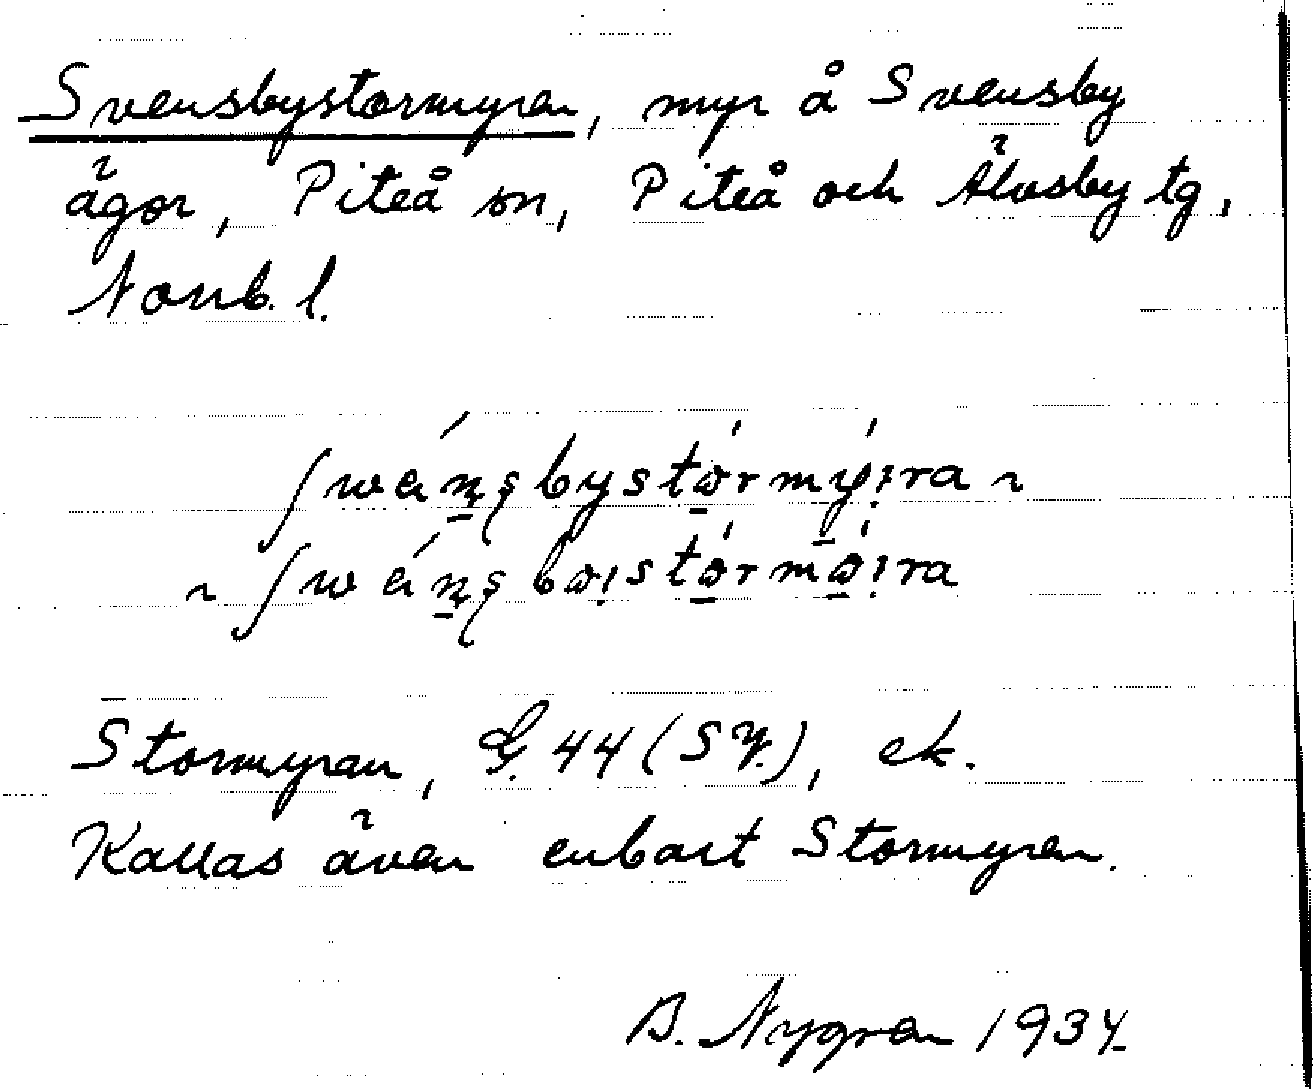 Svensbystormyren, myr å Svensby
ägor, Piteå sn, Piteå och Älvsby tg,
Norrb. l.
Stormyran, G. 44 (SV.), ek.
Kallas även enbart Stormyren.
B. Nygren 1934.